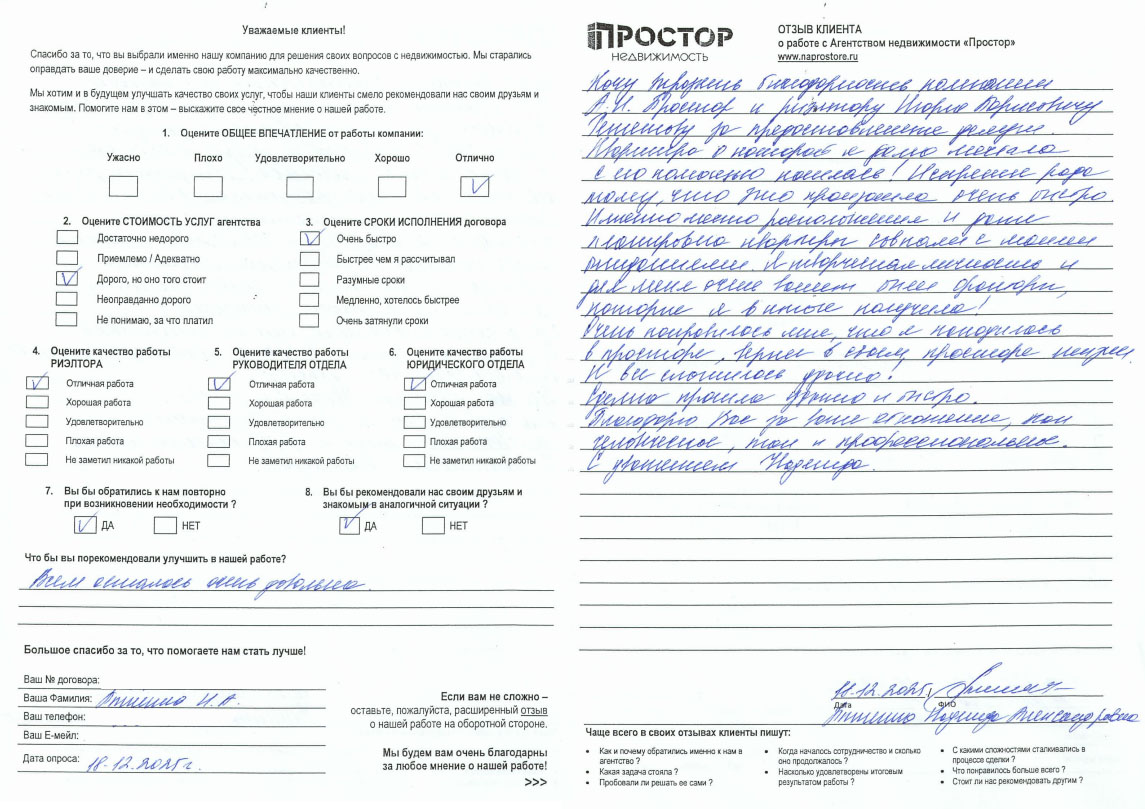 Уважаемые клиенты!
Спасибо за то, что вы выбрали именно нашу компанию для решения своих вопросов с недвижимостью. Мы старались
оправдать ваше доверие – и сделать свою работу максимально качественно.
Мы хотим и в будущем улучшать качество своих услуг, чтобы наши клиенты смело рекомендовали нас своим друзьям и
знакомым. Помогите нам в этом – выскажите свое честное мнение о нашей работе.
1. Оцените ОБЩЕЕ ВПЕЧАТЛЕНИЕ от работы компании:
Ужасно Плохо Удовлетворительно Хорошо Отлично
2. Оцените СТОИМОСТЬ УСЛУГ агентства
Достаточно недорого
Приемлемо / Адекватно
Дорого, но оно того стоит
Неоправданно дорого
Не понимаю, за что платил
3. Оцените СРОКИ ИСПОЛНЕНИЯ договора
Очень быстро
Быстрее чем я рассчитывал
Разумные сроки
Медленно, хотелось быстрее
Очень затянули сроки
4. Оцените качество работы
РИЭЛТОРА
Отличная работа
Хорошая работа
Удовлетворительно
Плохая работа
Не заметил никакой работы
5. Оцените качество работы
РУКОВОДИТЕЛЯ ОТДЕЛА
Отличная работа
Хорошая работа
Удовлетворительно
Плохая работа
Не заметил никакой работы
6. Оцените качество работы
ЮРИДИЧЕСКОГО ОТДЕЛА
Отличная работа
Хорошая работа
Удовлетворительно
Плохая работа
Не заметил никакой работы
7. Вы бы обратились к нам повторно
при возникновении необходимости ?
ДА НЕТ
8. Вы бы рекомендовали нас своим друзьям и
знакомым в аналогичной ситуации ?
ДА НЕТ
Что бы вы порекомендовали улучшить в нашей работе?
Всем осталась очень довольна.
Большое спасибо за то, что помогаете нам стать лучше!
Ваш № договора:
Ваша Фамилия: Н.А.
Ваш телефон:
Ваш Е-мейл:
Дата опроса: 18.12.2025г.
Если вам не сложно –
оставьте, пожалуйста, расширенный отзыв
о нашей работе на оборотной стороне.
Мы будем вам очень благодарны
за любое мнение о нашей работе!
>>>
ПРОСТОР
НЕДВИЖИМОСТЬ
ОТЗЫВ КЛИЕНТА
о работе с Агентством недвижимости «Простор»
www.naprostore.ru
Хочу выразить благодарность компании
А.Н. Простор и риэлтору Игорю Борисовичу
за предоставленные услуги.
Квартира о которой я долго мечтала
с его помощью нашлась! Искренне рада
тому, что это произошло очень быстро.
Именно место расположения и даже
планировка квартиры совпали с моими
ожиданиями. Я творческая личность и
для меня очень важен был простор,
которые я в итоге получила!
Очень понравилось мне, что я находилась
в просторе, в своем просторе
И все сложилось удачно!
Сделка прошла удачно и быстро.
Благодарю Вас за ваше отношение, как
человеческое, так и профессиональное.
С уважением Надежда.
18.12.2025г
Дата ФИО
Надежда Александровна
Чаще всего в своих отзывах клиенты пишут:
• Как и почему обратились именно к нам в
агентство ?
• Какая задача стояла ?
• Пробовали ли решать ее сами ?
• Когда началось сотрудничество и сколько
оно продолжалось ?
• Насколько удовлетворены итоговым
результатом работы ?
• С какими сложностями сталкивались в
процессе сделки ?
• Что понравилось больше всего ?
• Стоит ли нас рекомендовать другим ?